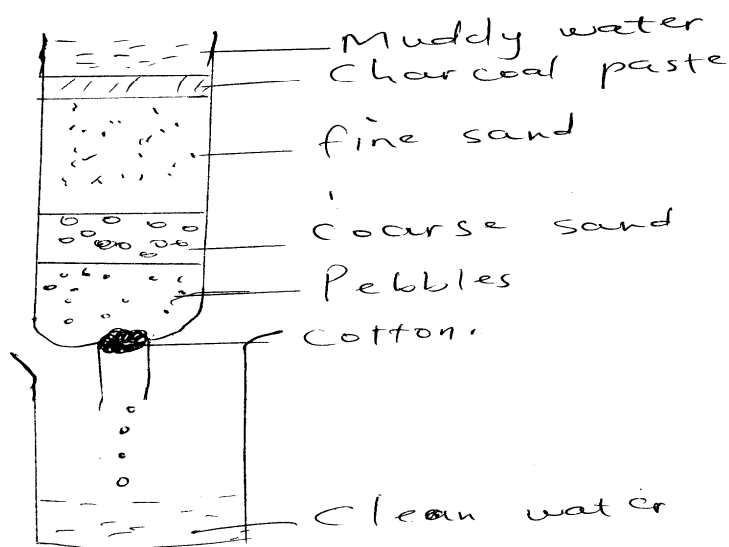 Muddy water
Charcoal paste
fine sand
Coarse sand
Pebbles
Cotton.
Clean water